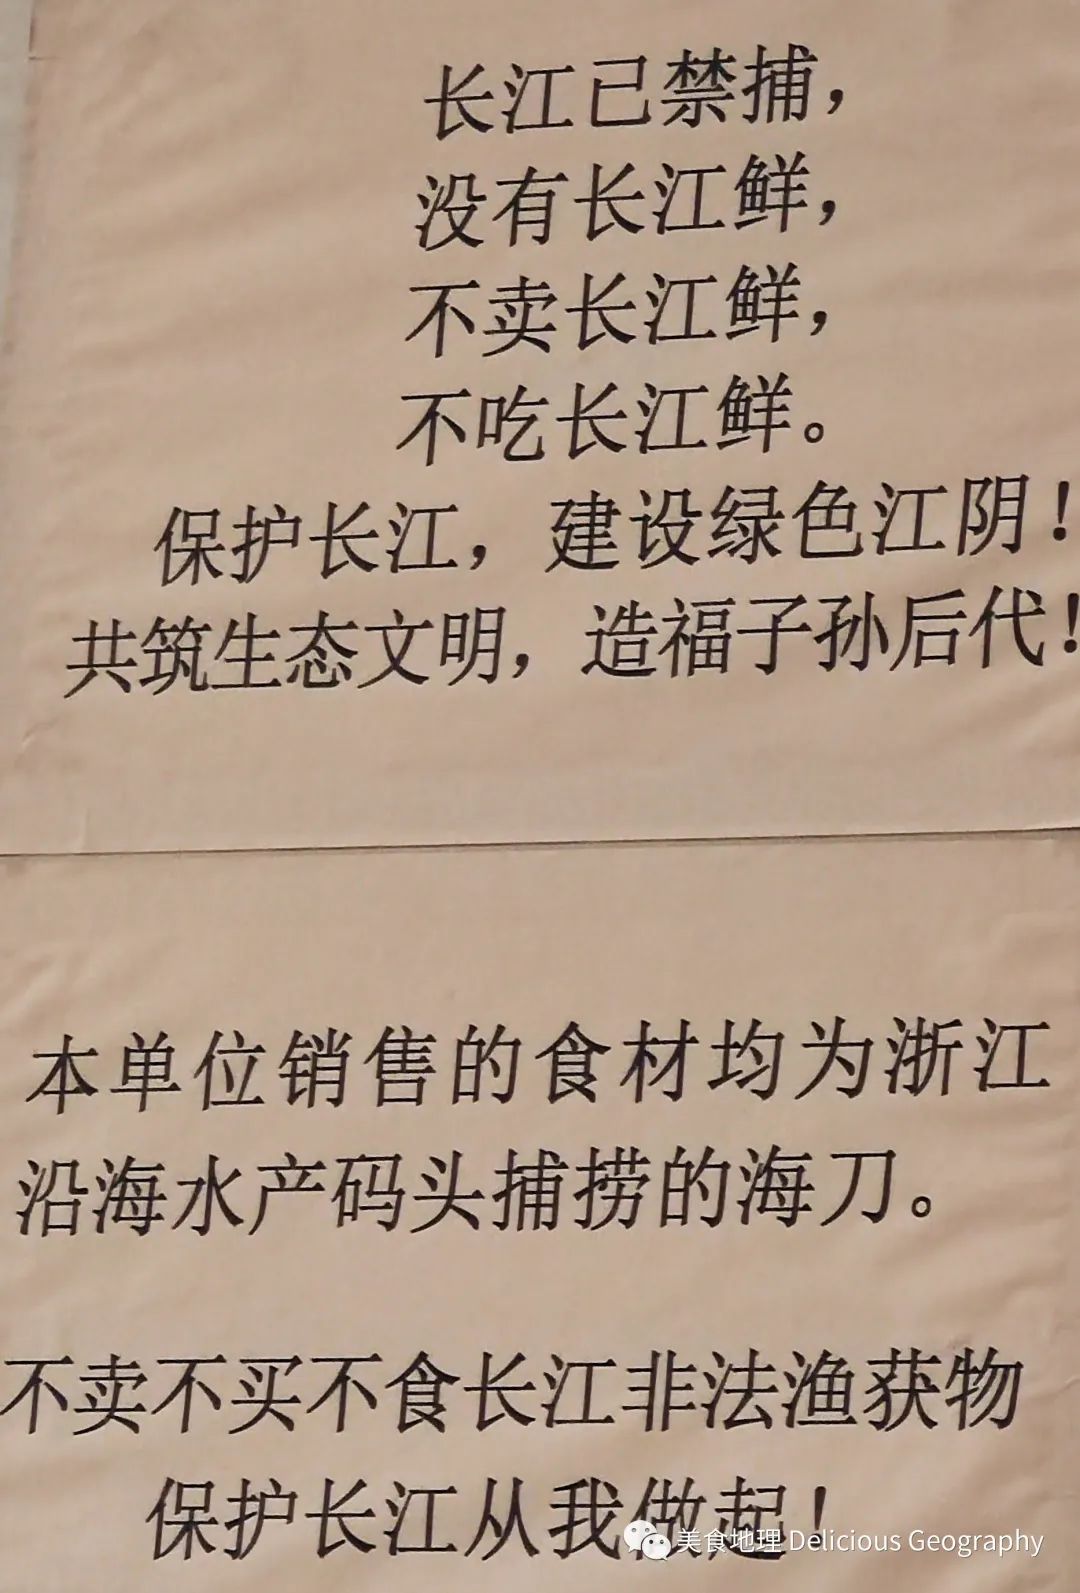 长江已禁捕，
没有长江鲜，
不卖长江鲜，
不吃长江鲜。
保护长江，建设绿色江阴！
共筑生态文明，造福子孙后代！
本单位销售的食材均为浙江
沿海水产码头捕捞的海刀。
不卖不买不食长江非法渔获物
保护长江从我做起！
美食地理 Delicious Geography